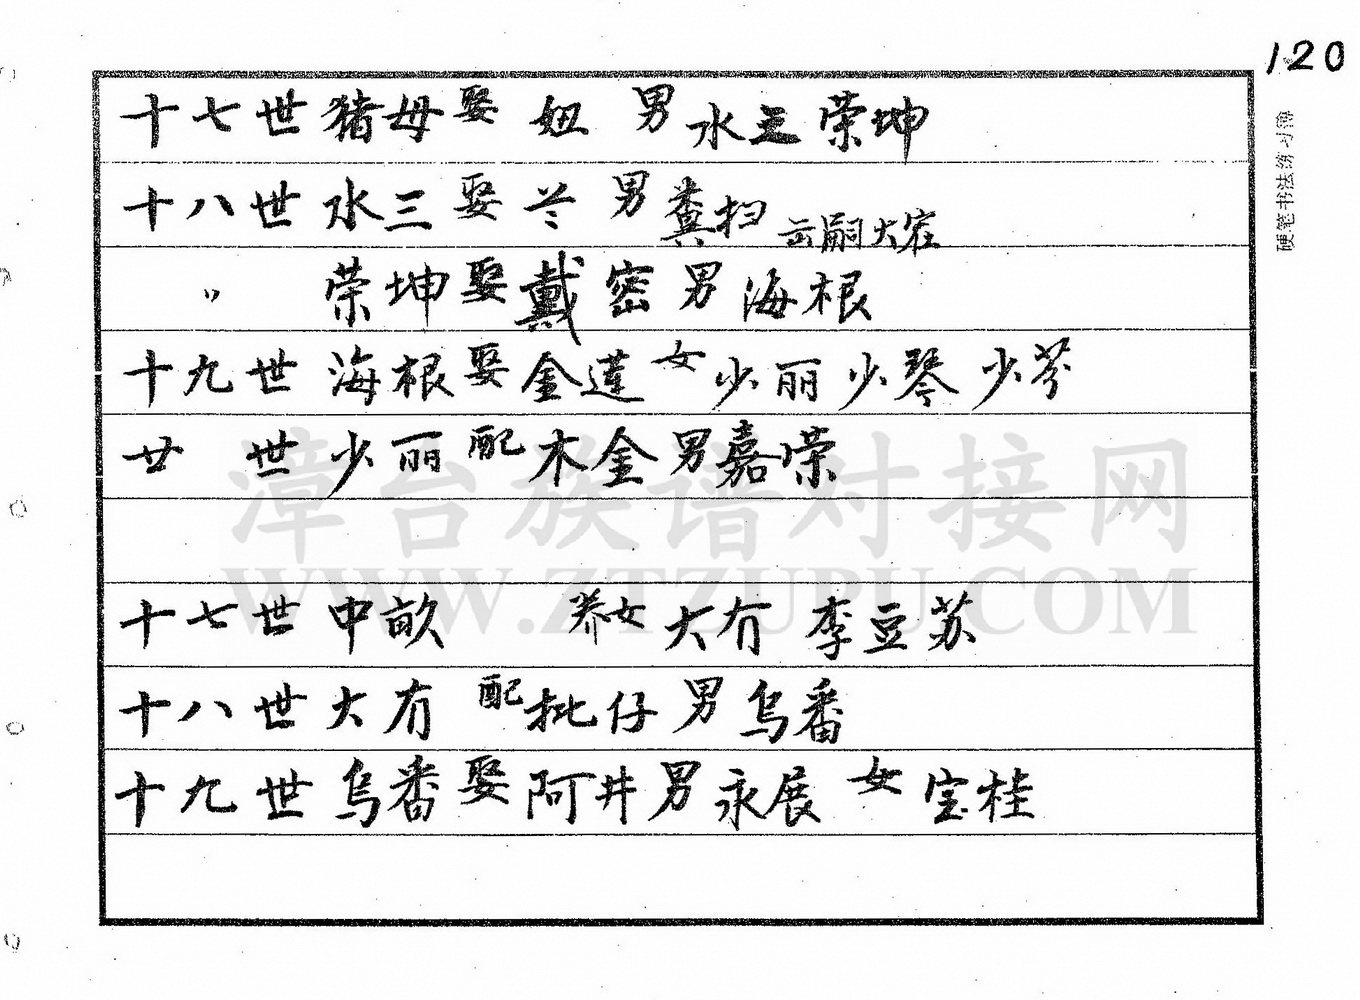 120
十七世 猪母 娶 妞 男 水三 荣坤
十八世 水三 娶 兰 男 粪扫 出嗣大宅
〃 荣坤 娶 戴密 男 海根
十九世 海根 娶 金莲 女 少丽 少琴 少芬
廿世 少丽 配 木金 男 嘉荣
十七世 中畝 养女 大有 李豆苏
十八世 大有 配 批仔 男 乌番
十九世 乌番 娶 阿井 男 永展 女 宝桂
硬笔书法练习簿
漳台族谱对接网
WWW.ZTZUPU.COM